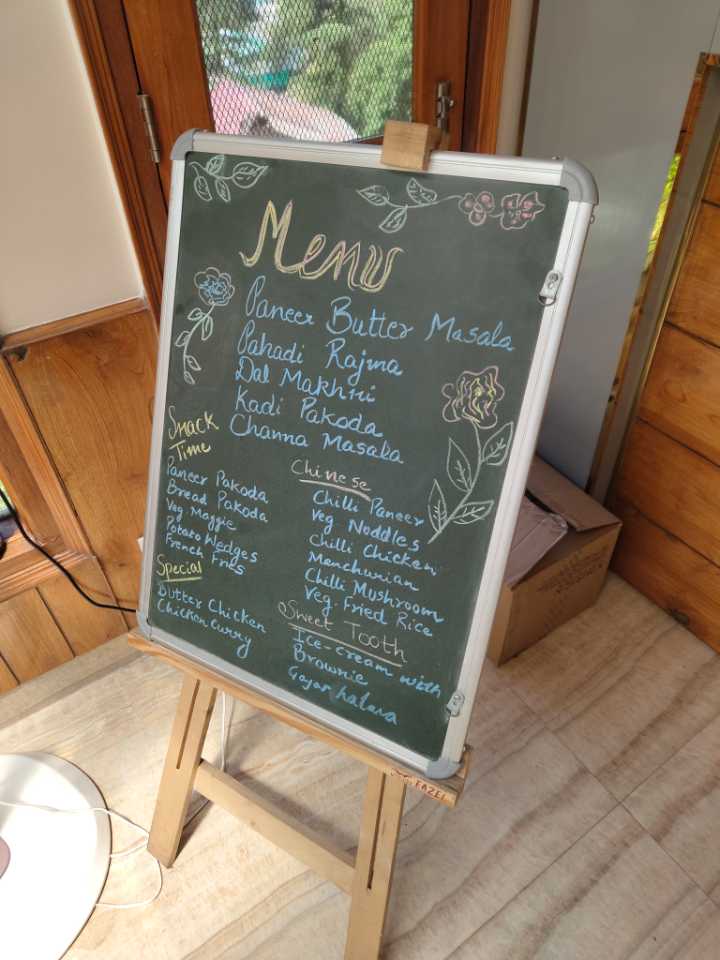 Menu
Paneer Butter Masala
Pahadi Rajma
Dal Makhni
Kadi Pakoda
Channa Masala
Snack
Time
Paneer Pakoda
Bread Pakoda
Veg Maggie
Potato Wedges
French Fries
Special
Butter Chicken
Chicken Curry
Chinese
Chilli Paneer
Veg Noddles
Chilli Chicken
Manchurian
Chilli Mushroom
Veg. Fried Rice
Sweet Tooth
Ice-cream with
Brownie
Gajar halwa